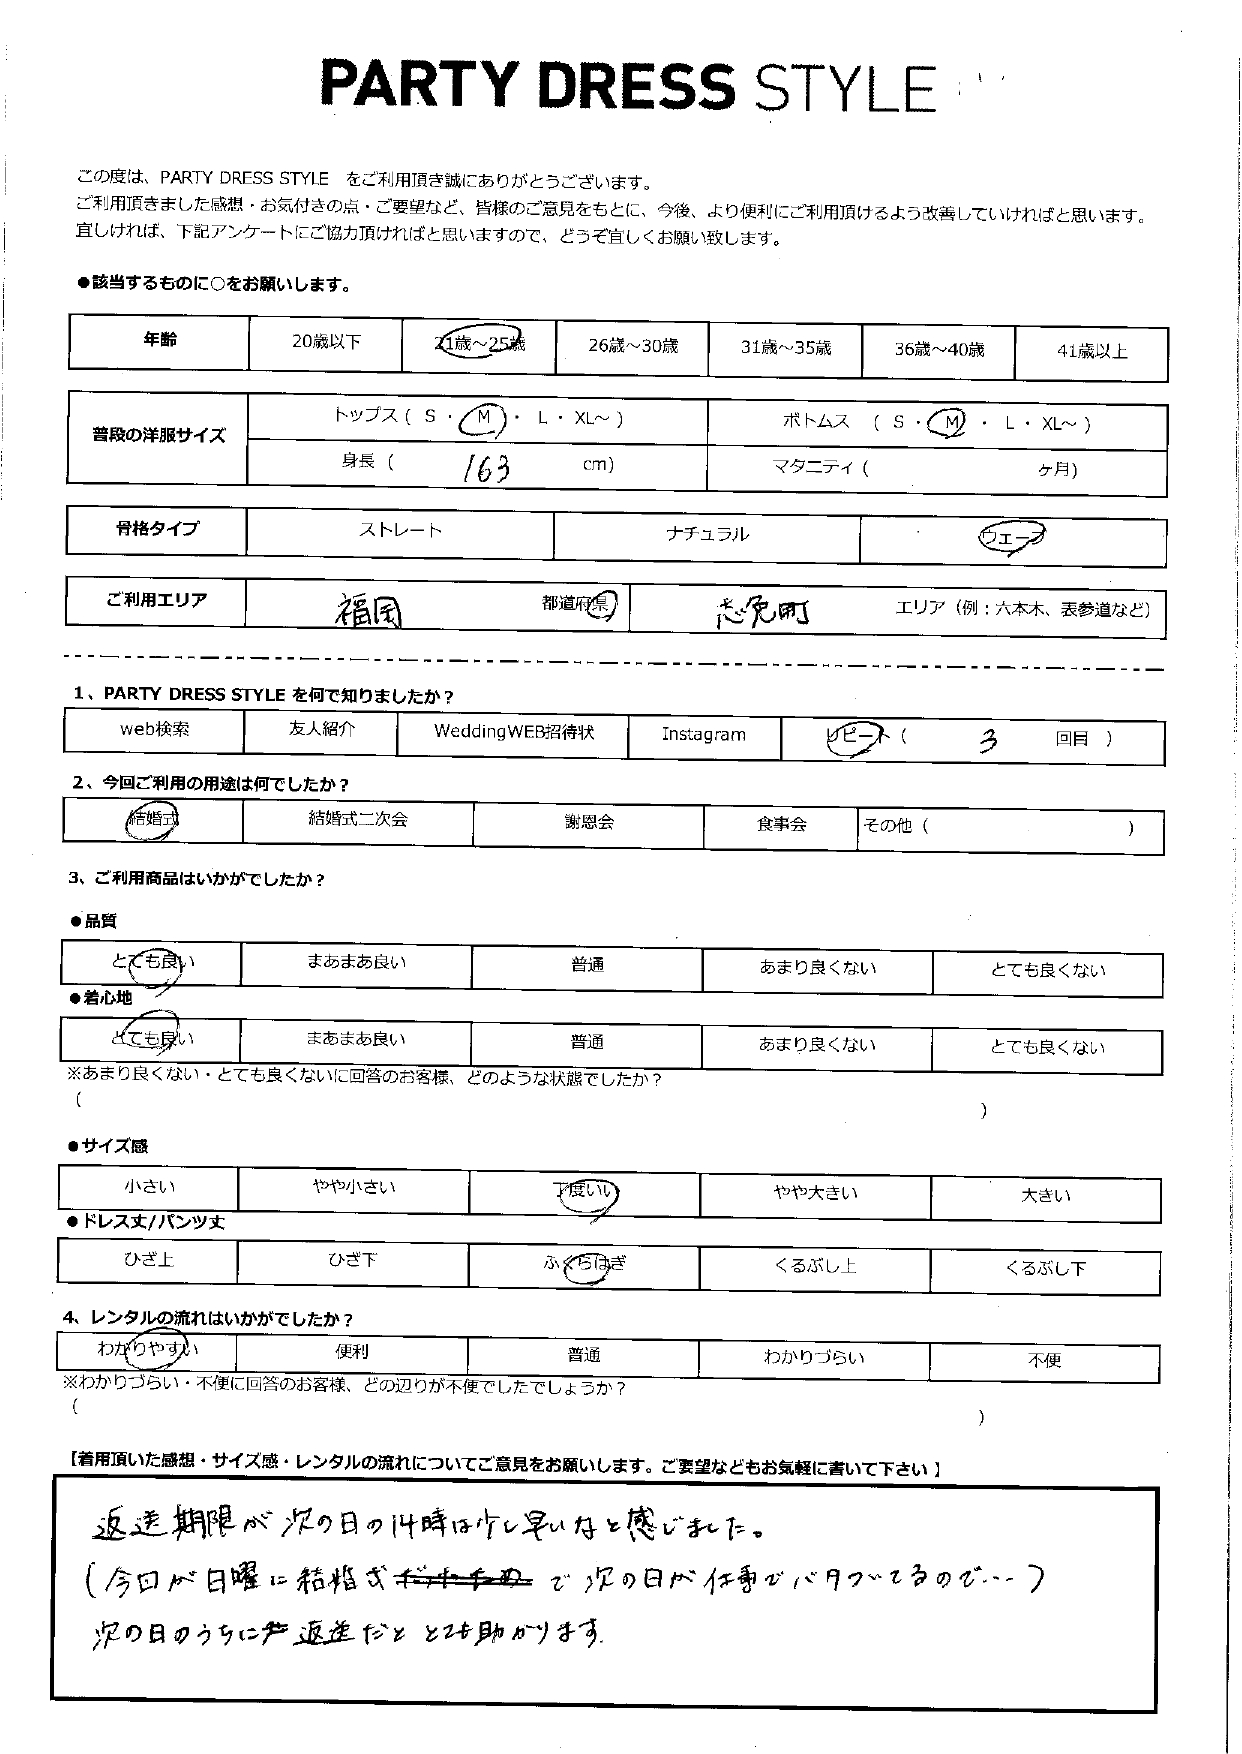 PARTY DRESS STYLE
この度は、PARTY DRESS STYLE をご利用頂き誠にありがとうございます。
ご利用頂きました感想・お気付きの点・ご要望など、皆様のご意見をもとに、今後、より便利にご利用頂けるよう改善していければと思います。
宜しければ、下記アンケートにご協力頂ければと思いますので、どうぞ宜しくお願い致します。
●該当するものに○をお願いします。
年齢 20歳以下 21歳～25歳 26歳～30歳 31歳～35歳 36歳～40歳 41歳以上
普段の洋服サイズ
トップス ( S ・ M ・ L ・ XL～ ) ボトムス ( S ・ M ・ L ・ XL～ )
身長 ( 163 cm) マタニティ ( ヶ月)
骨格タイプ ストレート ナチュラル ウェーブ
ご利用エリア 福岡 都道府県 志免町 エリア（例：六本木、表参道など）
1、PARTY DRESS STYLE を何で知りましたか？
web検索 友人紹介 WeddingWEB招待状 Instagram リピート ( 3 回目 )
2、今回ご利用の用途は何でしたか？
結婚式 結婚式二次会 謝恩会 食事会 その他 ( )
3、ご利用商品はいかがでしたか？
●品質
とても良い まあまあ良い 普通 あまり良くない とても良くない
●着心地
とても良い まあまあ良い 普通 あまり良くない とても良くない
※あまり良くない・とても良くないに回答のお客様、どのような状態でしたか？
( )
●サイズ感
小さい やや小さい 丁度いい やや大きい 大きい
●ドレス丈/パンツ丈
ひざ上 ひざ下 ふくらはぎ くるぶし上 くるぶし下
4、レンタルの流れはいかがでしたか？
わかりやすい 便利 普通 わかりづらい 不便
※わかりづらい・不便に回答のお客様、どの辺りが不便でしたでしょうか？
( )
【着用頂いた感想・サイズ感・レンタルの流れについてご意見をお願いします。ご要望などもお気軽に書いて下さい】
返送期限が次の日の14時は少し早いなと感じました。
(今回が日曜に結婚式で次の日が仕事でバタついてるので…)
次の日のうちに返送だととても助かります。